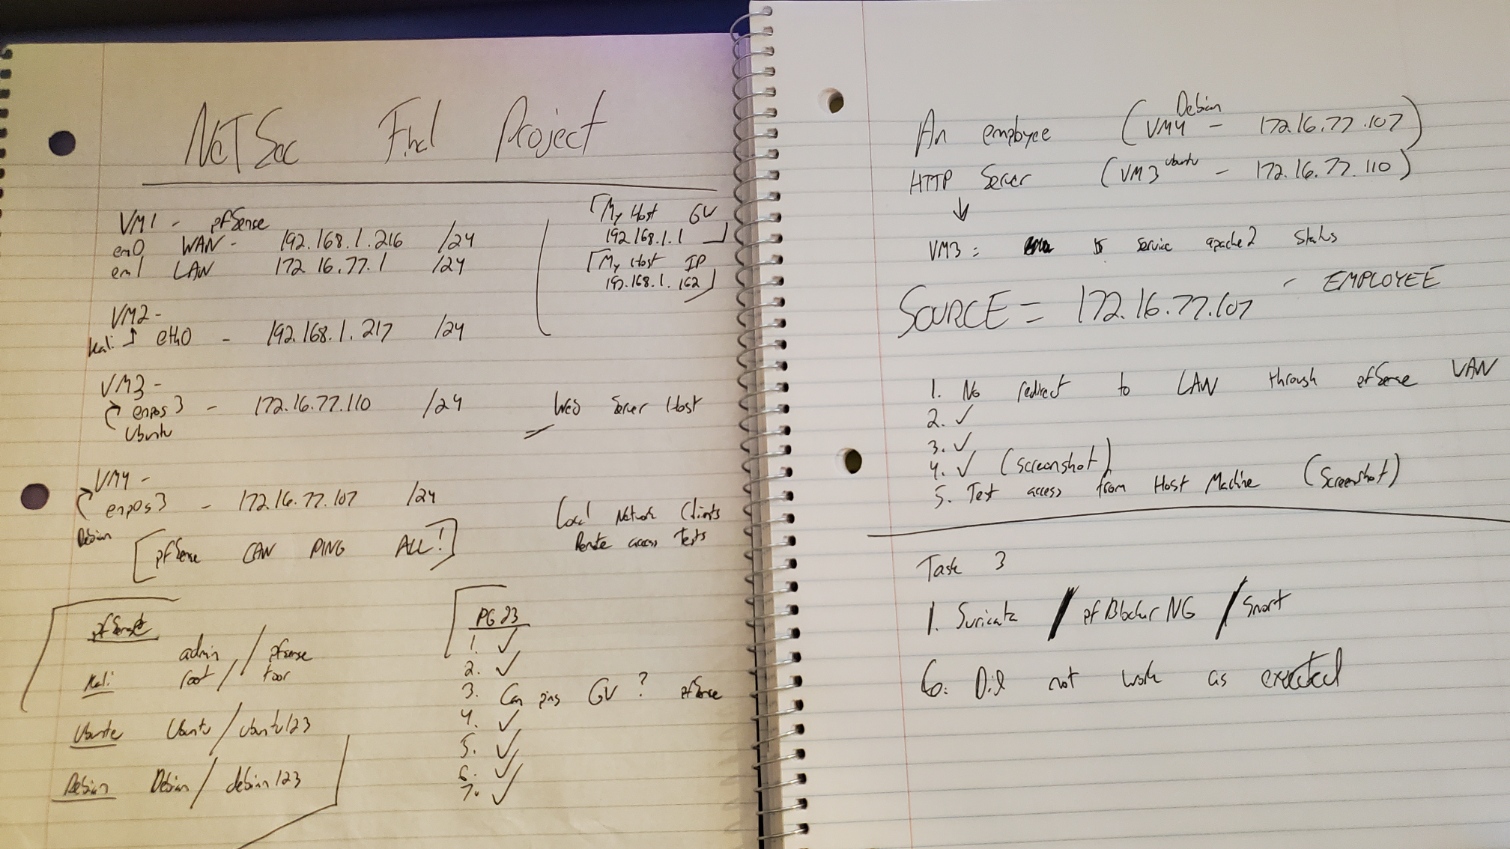 NetSec Final Project
VM1 - pfSense
em0 WAN - 192.168.1.216 /24
em1 LAN 172.16.77.1 /24
[My Host GW
192.168.1.1]
[My Host IP
192.168.1.162]
VM2 -
Kali eth0 - 192.168.1.217 /24
VM3 -
enp0s3 - 172.16.77.110 /24 Web Server Host
Ubuntu
VM4 -
enp0s3 - 172.16.77.107 /24
Debian
[pfSense CAN PING ALL!]
Local Network Clients
Remote access Tests
pfSense
admin / pfsense
Kali root / toor
Ubuntu Ubuntu / ubuntu123
Debian Debian / debian123
PG 23
1. ✓
2. ✓
3. Can ping GW? pfSense
4. ✓
5. ✓
6. ✓
7. ✓
An employee (VM4 Debian - 172.16.77.107)
HTTP Server (VM3 ubuntu - 172.16.77.110)
↓
VM3: service apache2 status
SOURCE = 172.16.77.107 - EMPLOYEE
1. No redirect to LAN through pfSense WAN
2. ✓
3. ✓
4. ✓ (screenshot)
5. Test access from Host Machine (Screenshot)
Task 3
1. Suricata / pfBlockerNG / Snort
6. Did not work as expected